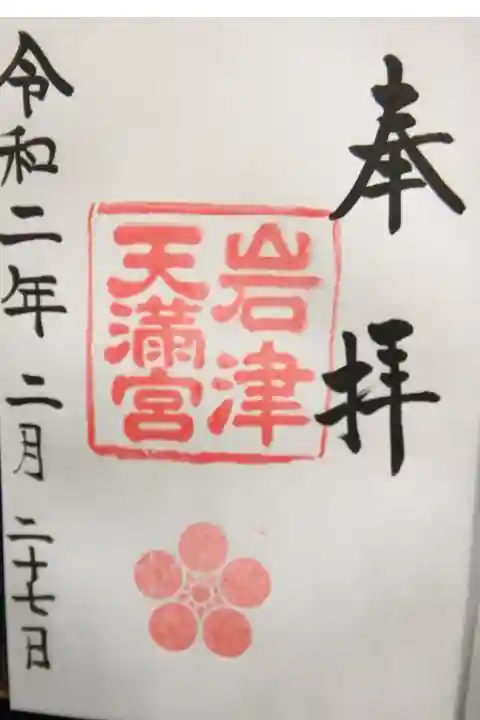 奉拝
岩津
天満宮
令和二年二月二十七日